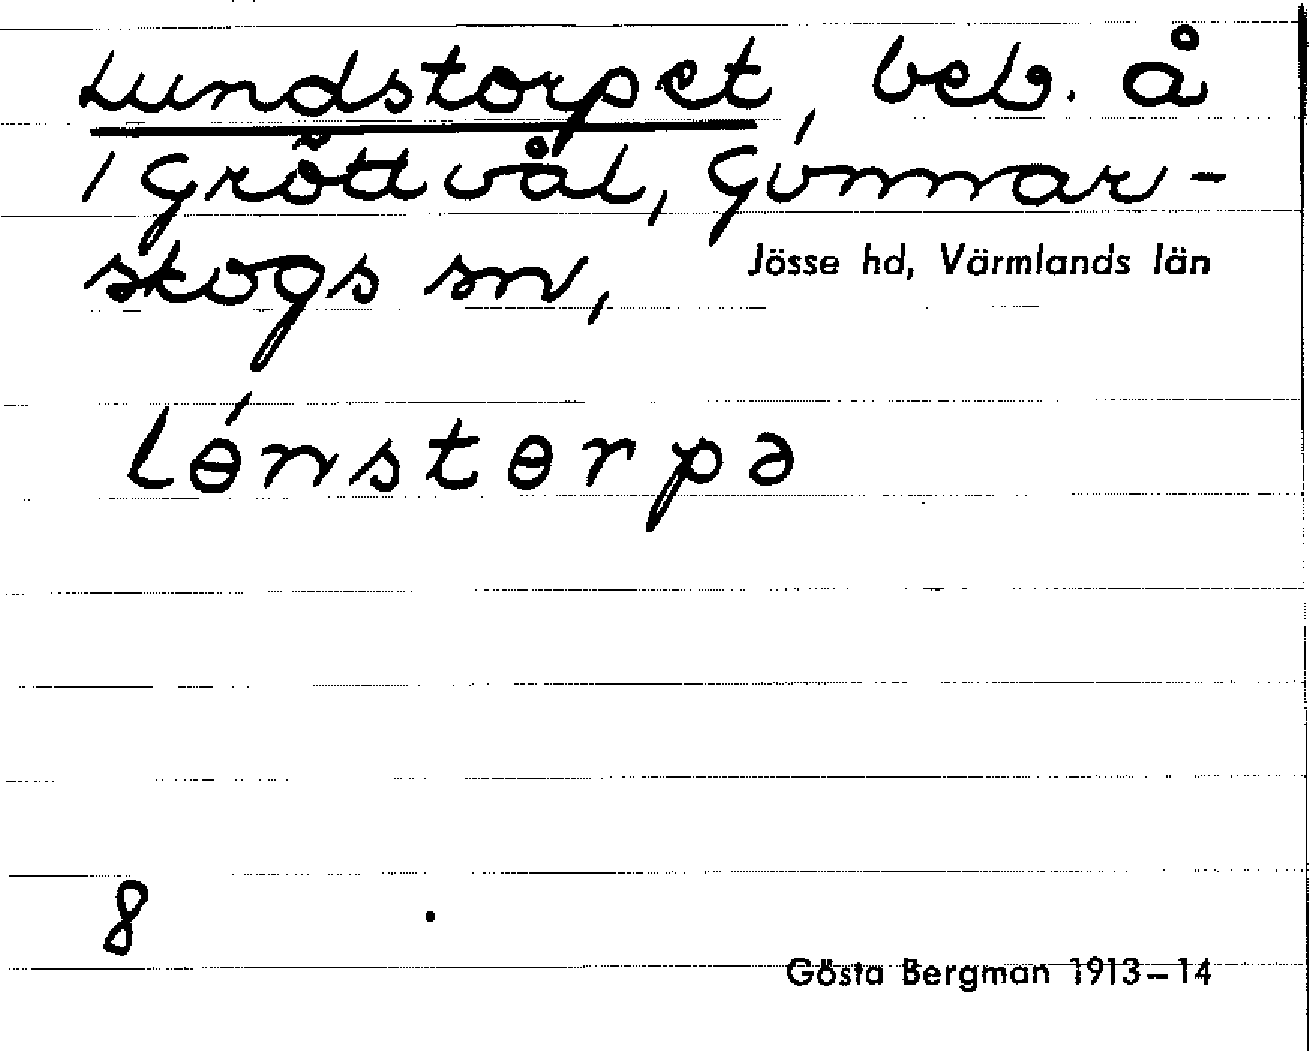 Lundstorpet, beb. å
1 Gröttvål, Gunnar-
skogs sn,
Jösse hd, Värmlands län
lɵ́nstɵrpə
8
Gösta Bergman 1913–14